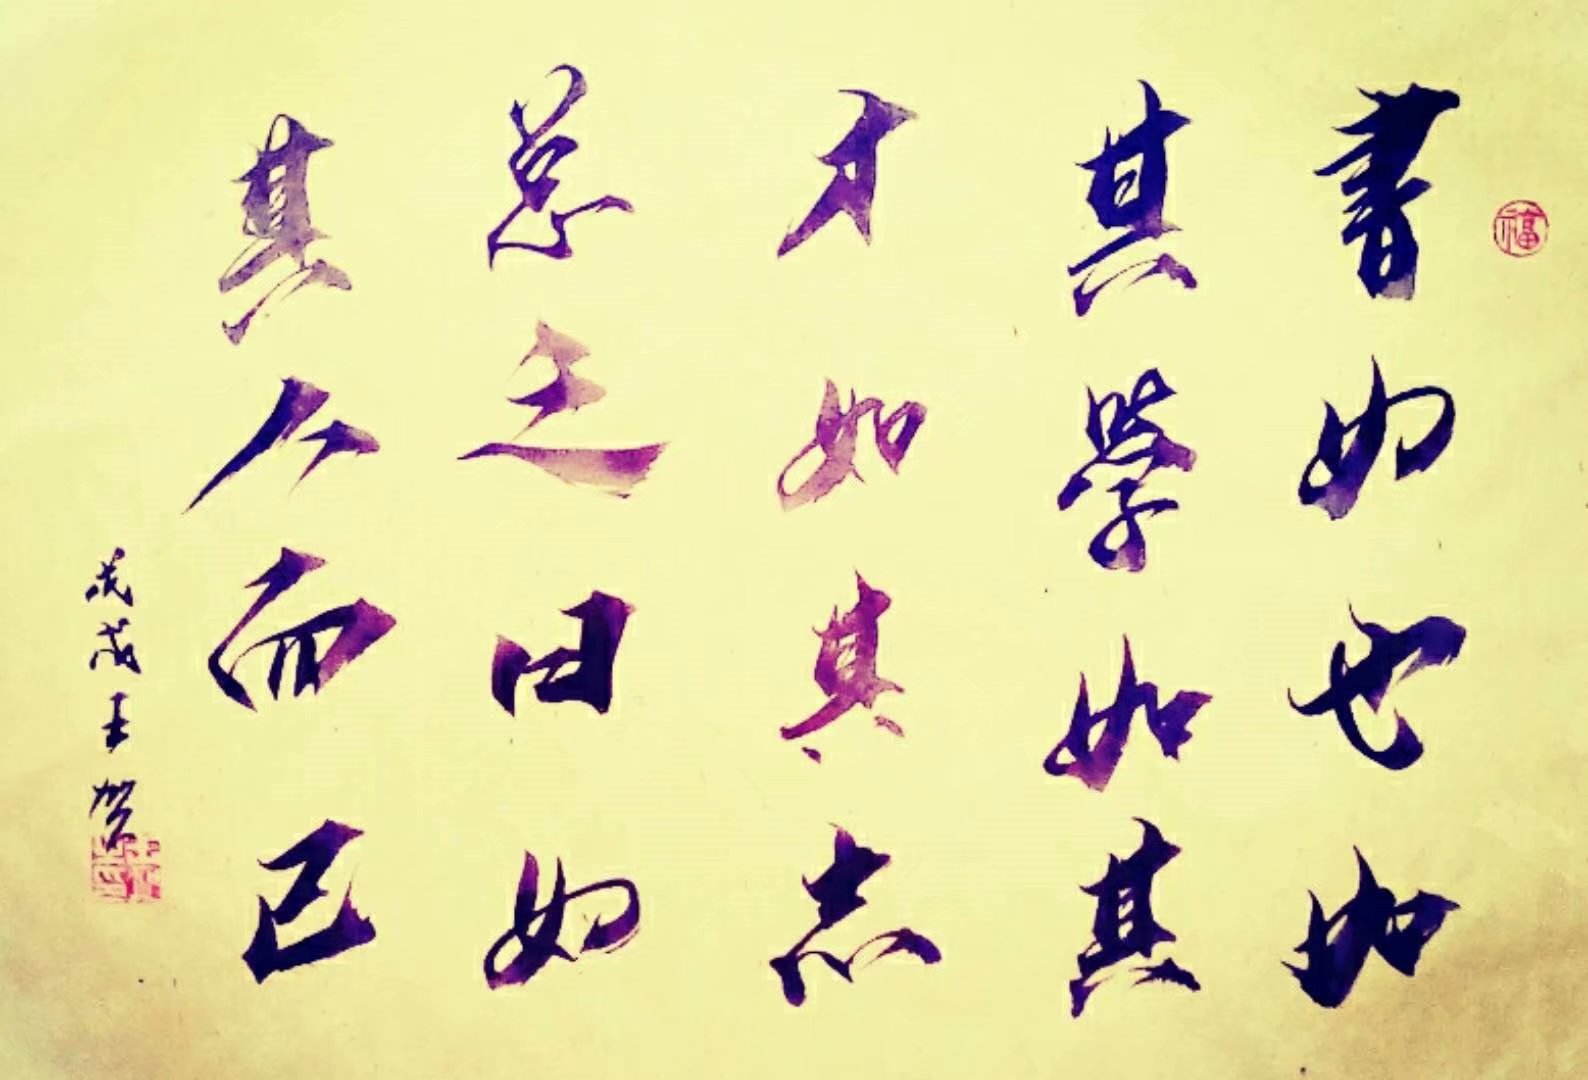 書如也如
其學如其
才如其志
总之曰如
其人而已
戊戌王贺
福